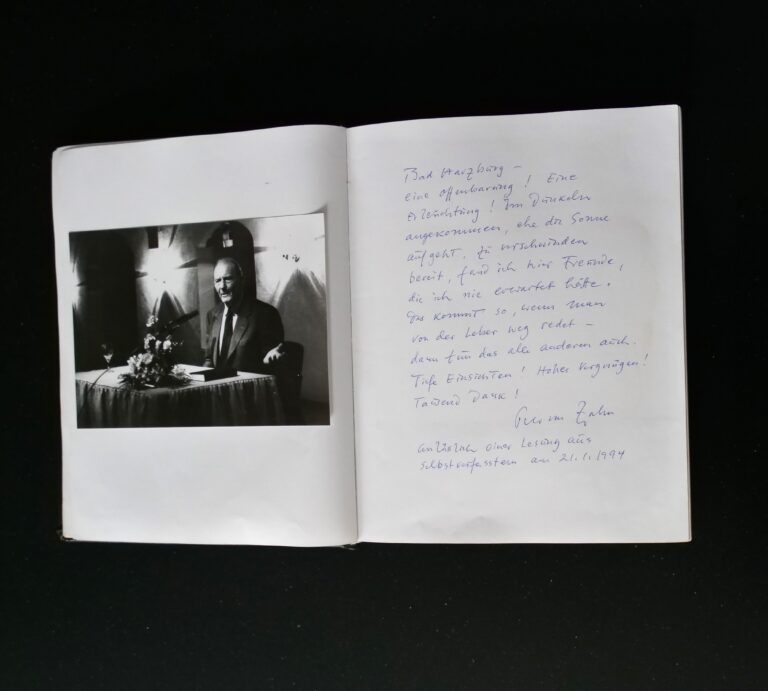 Bad Harzburg –
eine Offenbarung! Eine
Erleuchtung! Im Dunkeln
angekommen, ehe die Sonne
aufgeht. Zu verschwinden
bereit, fand ich hier Freunde,
die ich nie erwartet hätte.
Das kommt so, wenn man
von der Leber weg redet –
dann tun das alle anderen auch.
Tiefe Einsichten! Hohes Vergnügen!
Tausend Dank!
Peter von Zahn
anlässlich einer Lesung aus
Selbstverfasstem am 21.1.1994